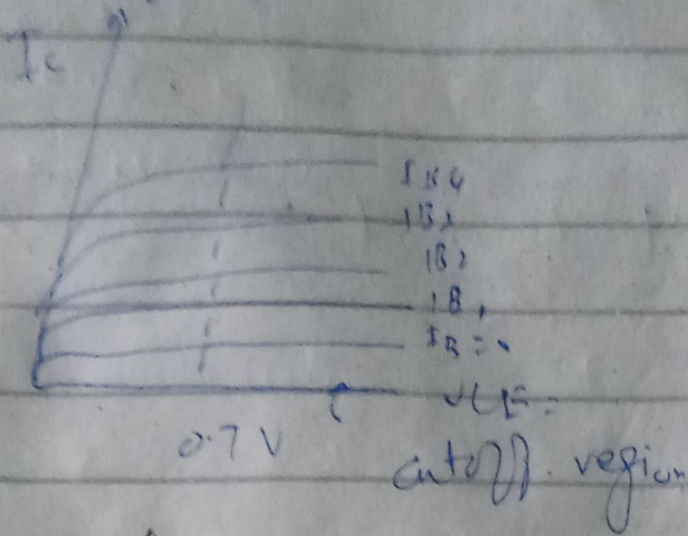 Ic
IB4
IB3
IB2
IB1
IB=0
VCE
0.7 V
cutoff region